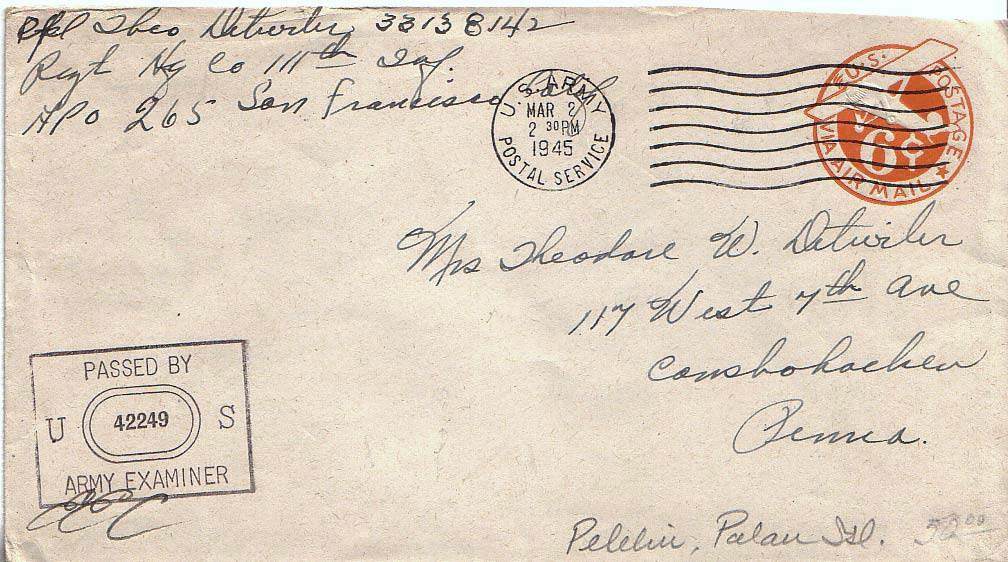 Pfc Theo Detwiler 33138142
Regt Hq Co 111th Inf.
APO 265 San Francisco Calif
U.S. ARMY
MAR 2
2 30PM
1945
POSTAL SERVICE
U.S. POSTAGE
6¢
VIA AIR MAIL
Mrs Theodore W. Detwiler
117 West 7th Ave
Conshohocken
Penna.
PASSED BY
U 42249 S
ARMY EXAMINER
Peleliu, Palau Isl.